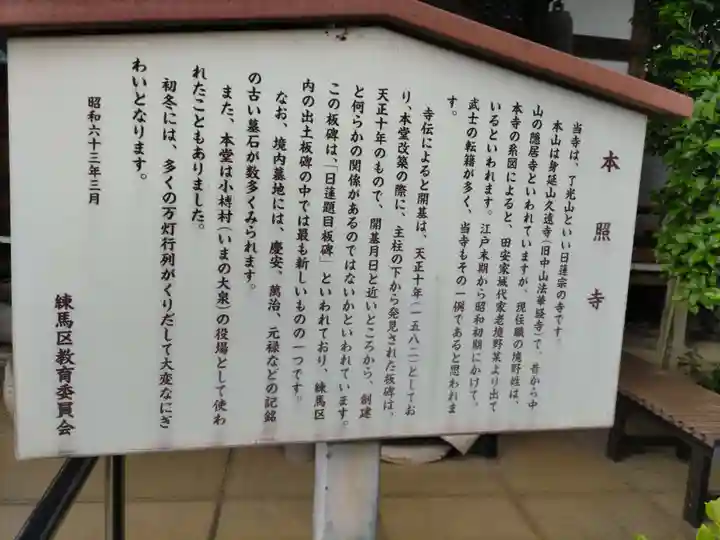 本照寺
当寺は、了光山といい日蓮宗の寺です。
本山は身延山久遠寺(旧中山法華経寺)で、昔から中
山の隠居寺といわれていますが、現住職の境野姓は、
本寺の系図によると、田安家城代家老境野某より出て
いるといわれます。江戸末期から昭和初期にかけて、
武士の転籍が多く、当寺もその一例であると思われま
す。
寺伝によると開基は、天正十年(一五八二)としてお
り、本堂改築の際に、主柱の下から発見された板碑は、
天正十年のもので、開基月日と近いところから、創建
と何らかの関係があるのではないかといわれています。
この板碑は、「日蓮題目板碑」といわれており、練馬区
内の出土板碑の中では最も新しいものの一つです。
なお、境内墓地には、慶安、萬治、元禄などの記銘
の古い墓石が数多くみられます。
また、本堂は小榑村(いまの大泉)の役場として使わ
れたこともありました。
初冬には、多くの万灯行列がくりだして大変なにぎ
わいとなります。
昭和六十三年三月
練馬区教育委員会